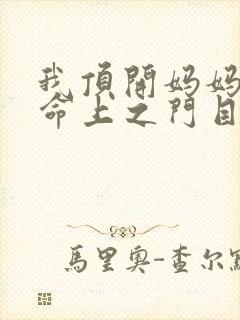 我頂開媽媽
命上之門自
馬里奧-查尔